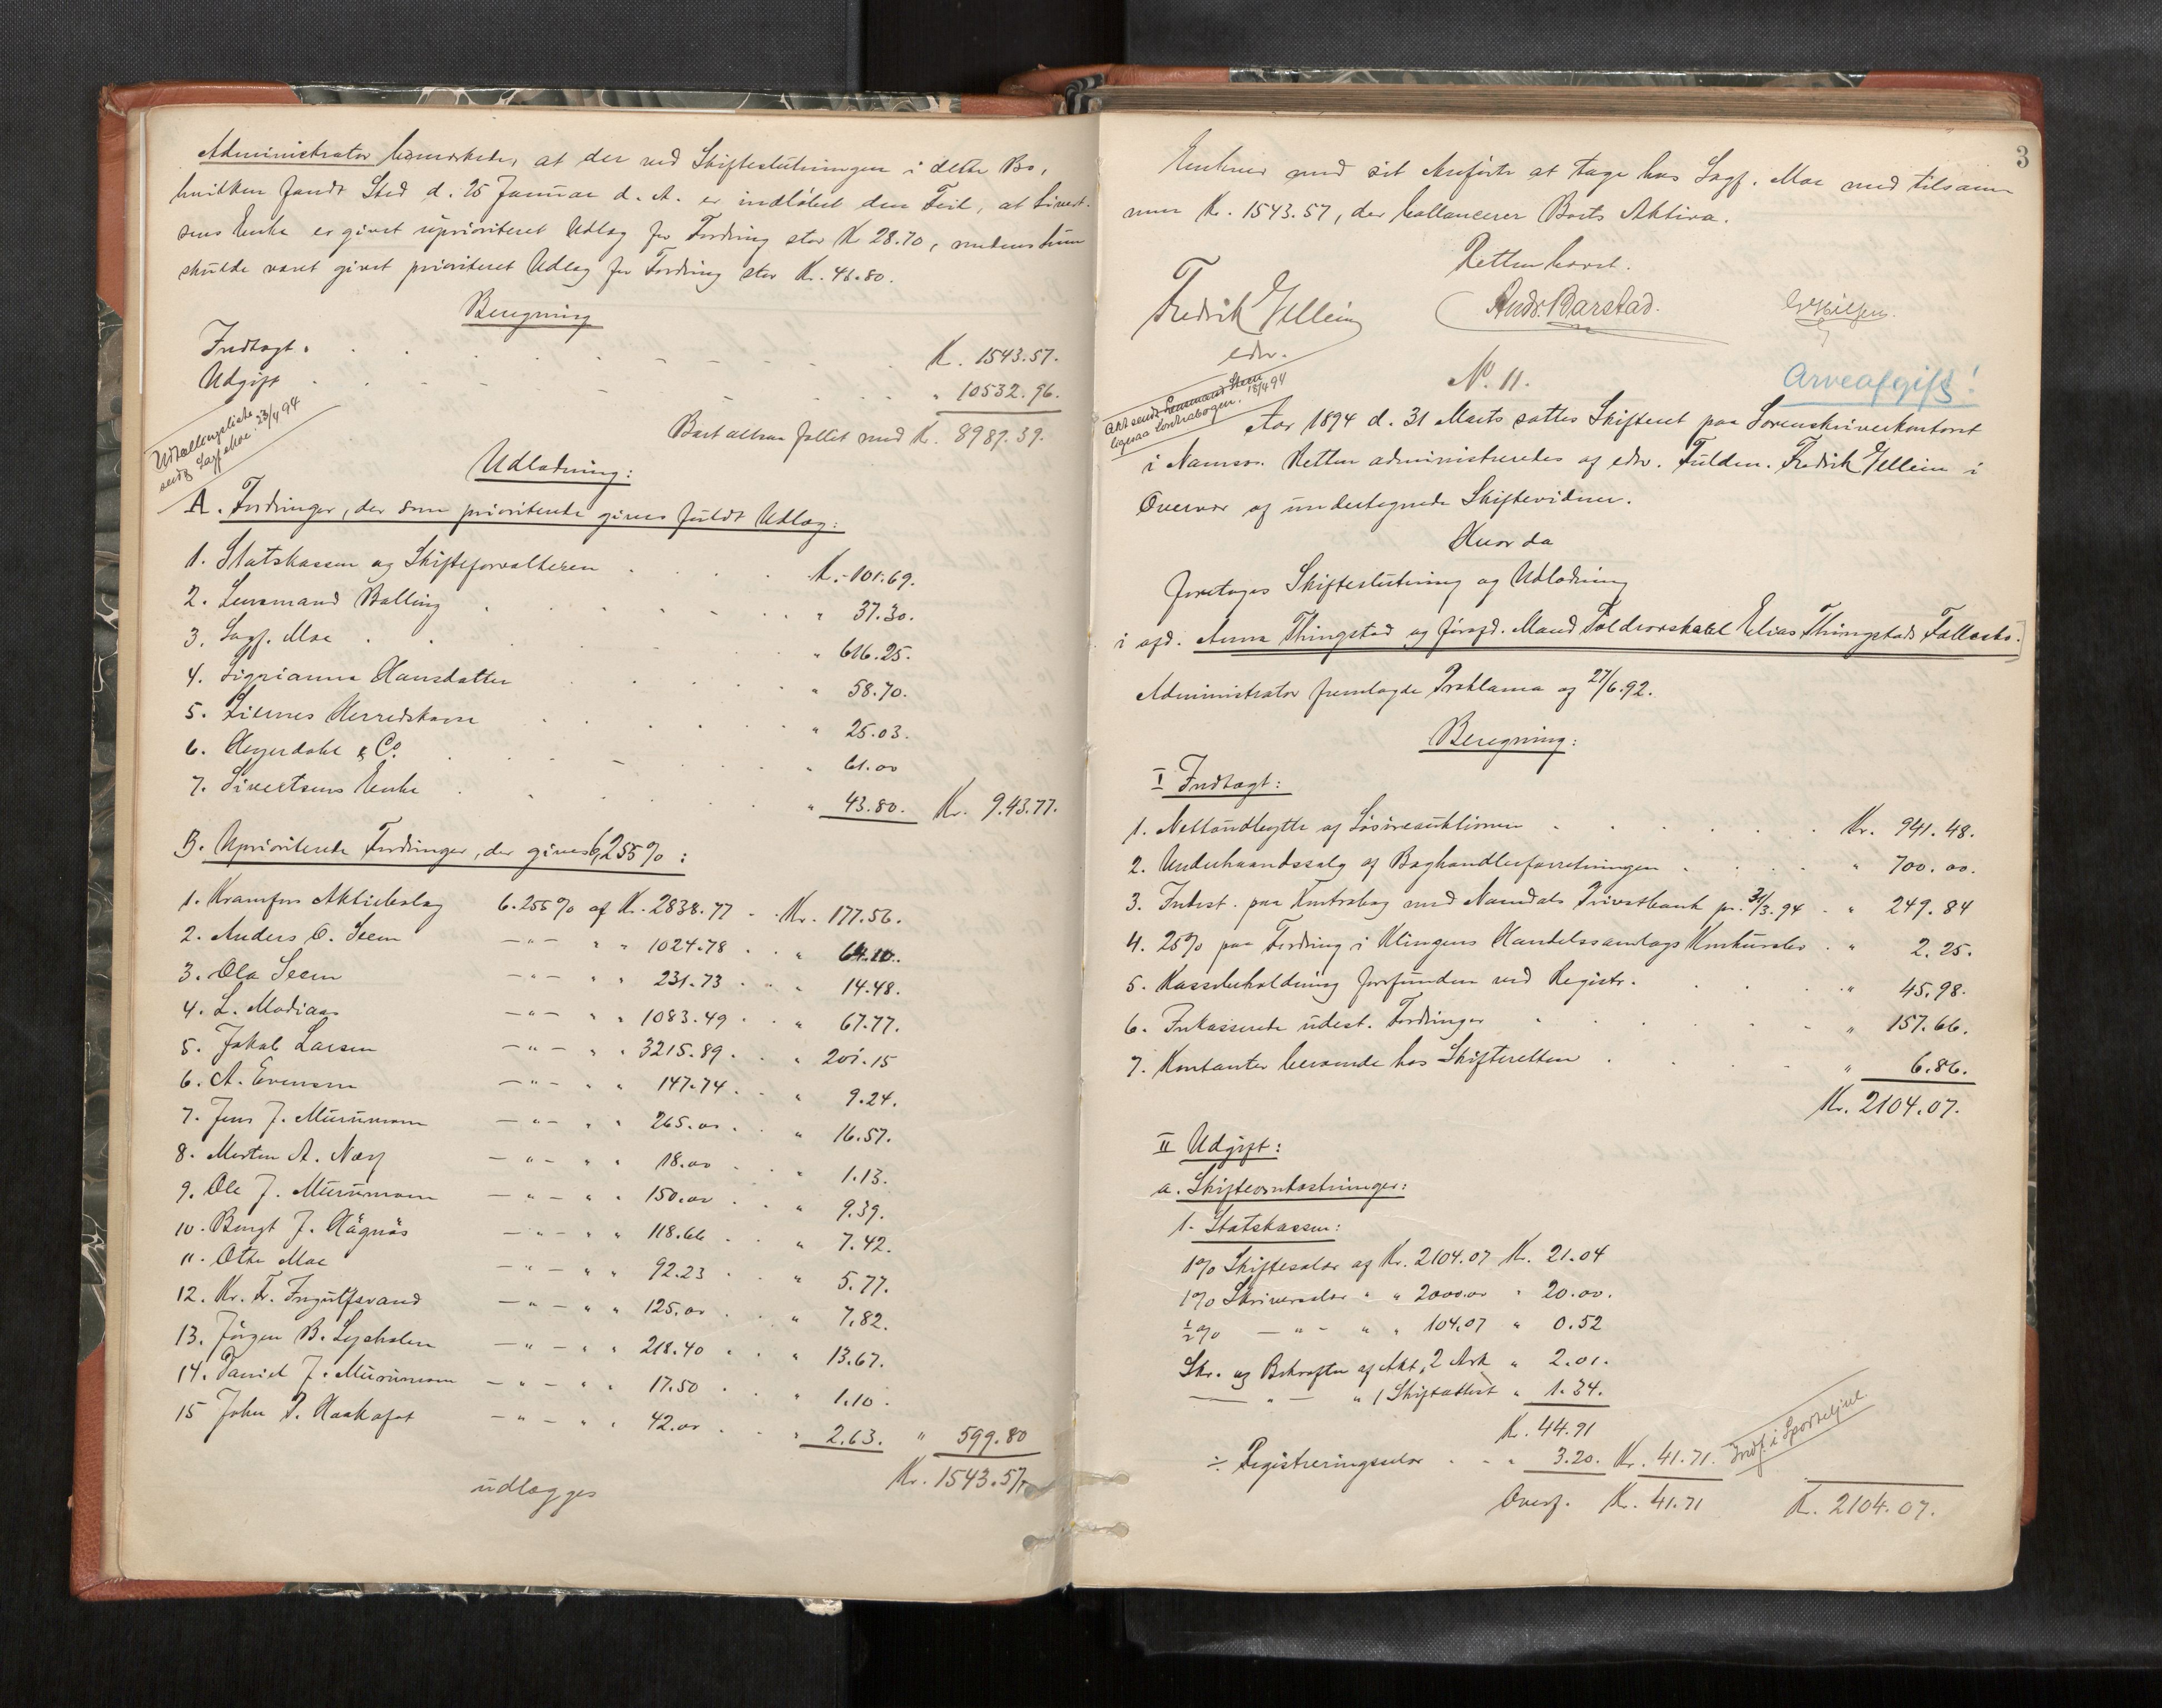 Administrator bemærkede, at der ved Skifteslutningen i dette Bo,
hvilken fandt Sted d. 25 Januar d. A. er indløbet den Feil, at Sivert-
sens Enke er givet uprioriteret Udlæg for Fordring stor Kr 28.70, medens hun
skulde været givet prioriteret Udlæg for Fordring stor Kr. 43.80.
Beregning
Indtægt . . . K. 1543.57.
Udgift . . . " 10532.96.
Boet altsaa fallit med K. 8989.39.
Udtallingsliste
sendt Sagf. Moe. 23/4 94
Udlodning:
A. Fordringer, der som prioriterte gives fuldt Udlæg:
1. Statskassen og Skifteforvalteren . . . K. 101.69.
2. Lensmand Balling . . . " 37.30.
3. Sagf. Moe . . . " 616.25.
4. Sigrianna Hansdatter . . . " 58.70.
5. Liernes Herredskasse . . . " 25.03.
6. Heyerdahl & Co. . . . " 61.00
7. Sivertsens Enke . . . " 43.80. Kr. 943.77.
B. Uprioriterte Fordringer, der gives 6,255%:
1. Kramfors Aktiebolag 6.255% af Kr. 2838.77 . Kr. 177.56.
2. Anders O. Seem — " — " " 1024.78 . . " 64.10.
3. Ola Seem — " — " " 231.73 . " " 14.48.
4. L. Modiaas — " — " " 1083.49 . . " 67.77.
5. Jakob Larsen — " — " " 3215.89 . . " 201.15
6. A. Evensen — " — " " 147.74 . . " 9.24.
7. Jens J. Murumoen — " — " " 265.00 . . " 16.57.
8. Morten A. Næss — " — " " 18.00 . . " 1.13.
9. Ole J. Murumoen — " — " " 150.00 . . " 9.39.
10. Bengt J. Hågnäs — " — " " 118.66 . . " 7.42.
11. Othe Moe — " — " " 92.23 . . " 5.77.
12. Kr. Fr. Ingulfsvand — " — " " 125.00 . . " 7.82.
13. Jörgen B. Lysholm — " — " " 218.40 . . " 13.67.
14. Daniel J. Murumoen — " — " " 17.50 . . " 1.10.
15 John P. — " — " " 42.00 . . " 2.63. " 599.80
Kr. 1543.57
udlægges
3
Enkens med sit Anførte at tage hos Sagf. Moe med tilsam-
men Kr. 1543.57, der ballancerer Boets Aktiva.
Retten hævet.
Fredrik Gellein
edsv.
Andr. Barstad.
No. 11.
Arveafgift!
Akt sendt Lensmand Steen
ligesaa Kontrabogen. 18/4 94
Aar 1894 d. 31 Marts sattes Skifteret paa Sorenskriverkontoret
i Namsos. Retten administreredes af edsv. Fuldm. Fredrik Gellein i
Overvær af undertegnede Skiftevidner.
Hvor da
foretages Skifteslutning og Udlodning
i afd. Anna Thingstad og forafd. Mand Toldrorskarl Elias Thingstads Fællesbo.
Administrator fremlagde Proklama af 27/6.92.
Beregning:
I Indtægt:
1. Nettoudbytte af Løsøreauktionen . . . Kr. 941.48.
2. Underhaandssalg af Boghandlerforretningen . . . " 700.00.
3. Indest. paa Kontrabog med Namdals Privatbank pr. 31/3.94 . " 249.84
4. 25% paa Fordring i Klingens Handelssamlags Konkursbo . " 2.25.
5. Kassebeholdning forefunden ved Registr. . . . " 45.98.
6. Inkasserede udest. Fordringer . . . " 157.66.
7. Kontanter beroende hos Skifteretten . . . " 6.86.
Kr. 2104.07.
II Udgift:
a. Skifteomkostninger:
1. Statskassen:
1% Skiftesalær af Kr. 2104.07 Kr. 21.04
1% Skriversalær " " 2000.00 " 20.00.
1/2% — " — " " 104.07 " 0.52
Skr. og Bekræften af Akt, 2 Ark " 2.01.
— " — " 1 Skifteattest " 1.34.
K. 44.91
÷ Registreringssalær . . " 3.20. Kr. 41.71.
Indf. i Sporteljnl
Overf. K. 41.71 K. 2104.07.